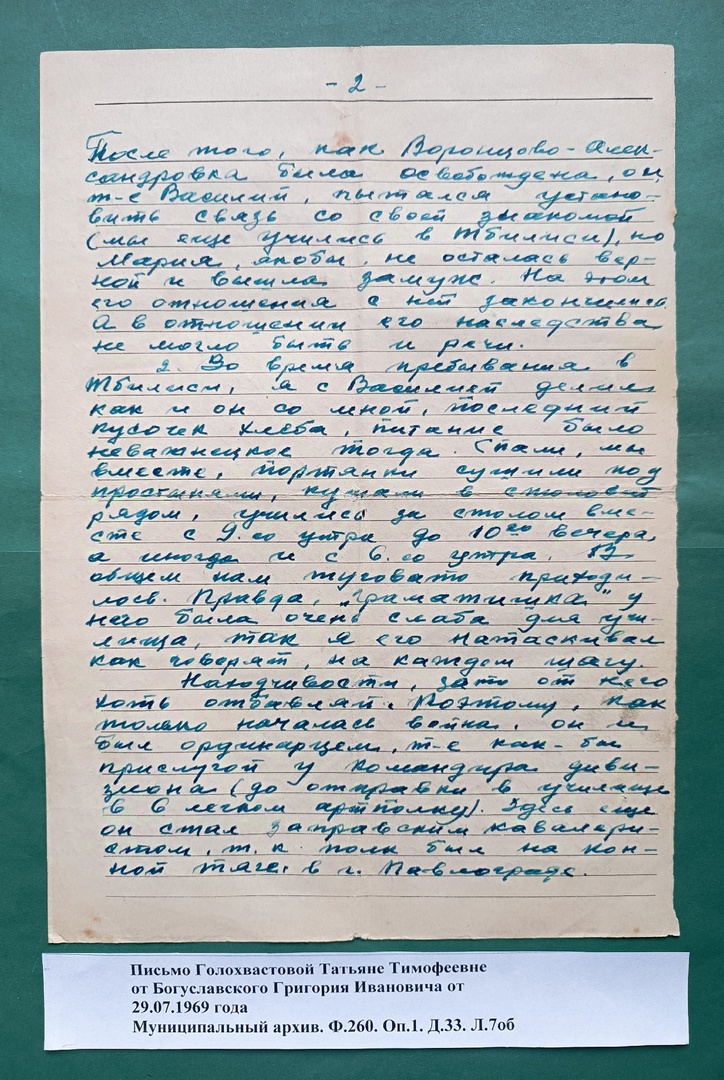 - 2 -
После того, как Воронцово-Алек-
сандровка была освобождена, он,
т-е Василий, пытался устано-
вить связь со своей знакомой
(мы еще учились в Тбилиси), но
Мария, якобы, не осталась вер-
ной и вышла замуж. На этом
его отношения с ней закончились.
А в отношении его наследства
не могло быть и речи.
2. Во время пребывания в
Тбилиси, я с Василием делил
как и он со мной, последний
кусочек хлеба, питание было
неважнецкое тогда. Спали, мы
вместе, портянки сушили под
простынями, кушали в столовой
рядом, учились за столом вме-
сте с 9.00 утра до 10 00 вечера,
а иногда и с 6.00 утра. В
общем нам туговато приходи-
лось. Правда, "граматишка" у
него была очень слаба для учи-
лища, так я его натаскивал
как говорят, на каждом шагу.
Находчивости, зато от него
хоть отбавляй. Поэтому, как
только началась война, он и
был ординарцем, т-е как-бы
прислугой у командира диви-
зиона (до отправки в училище
в 6 легком артполку). Здесь еще
он стал заправским кавалери-
стом, т.к. полк был на кон-
ной тяге, в г. Павлограде.
Письмо Голохвастовой Татьяне Тимофеевне
от Богуславского Григория Ивановича от
29.07.1969 года
Муниципальный архив. Ф.260. Оп.1. Д.33. Л.7об